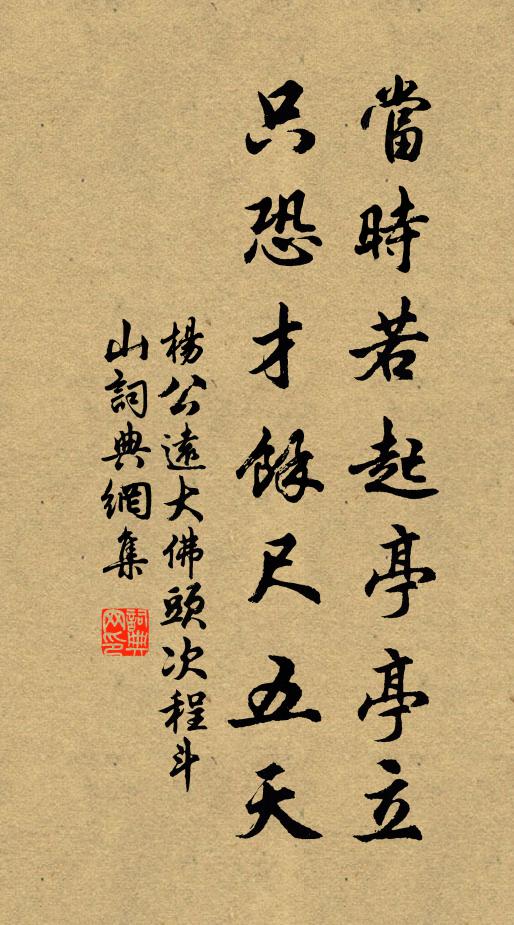 當時若起亭亭立
只恐才餘尺五天
楊公遠大佛頭次程斗
山詞典網集
詞典
网印